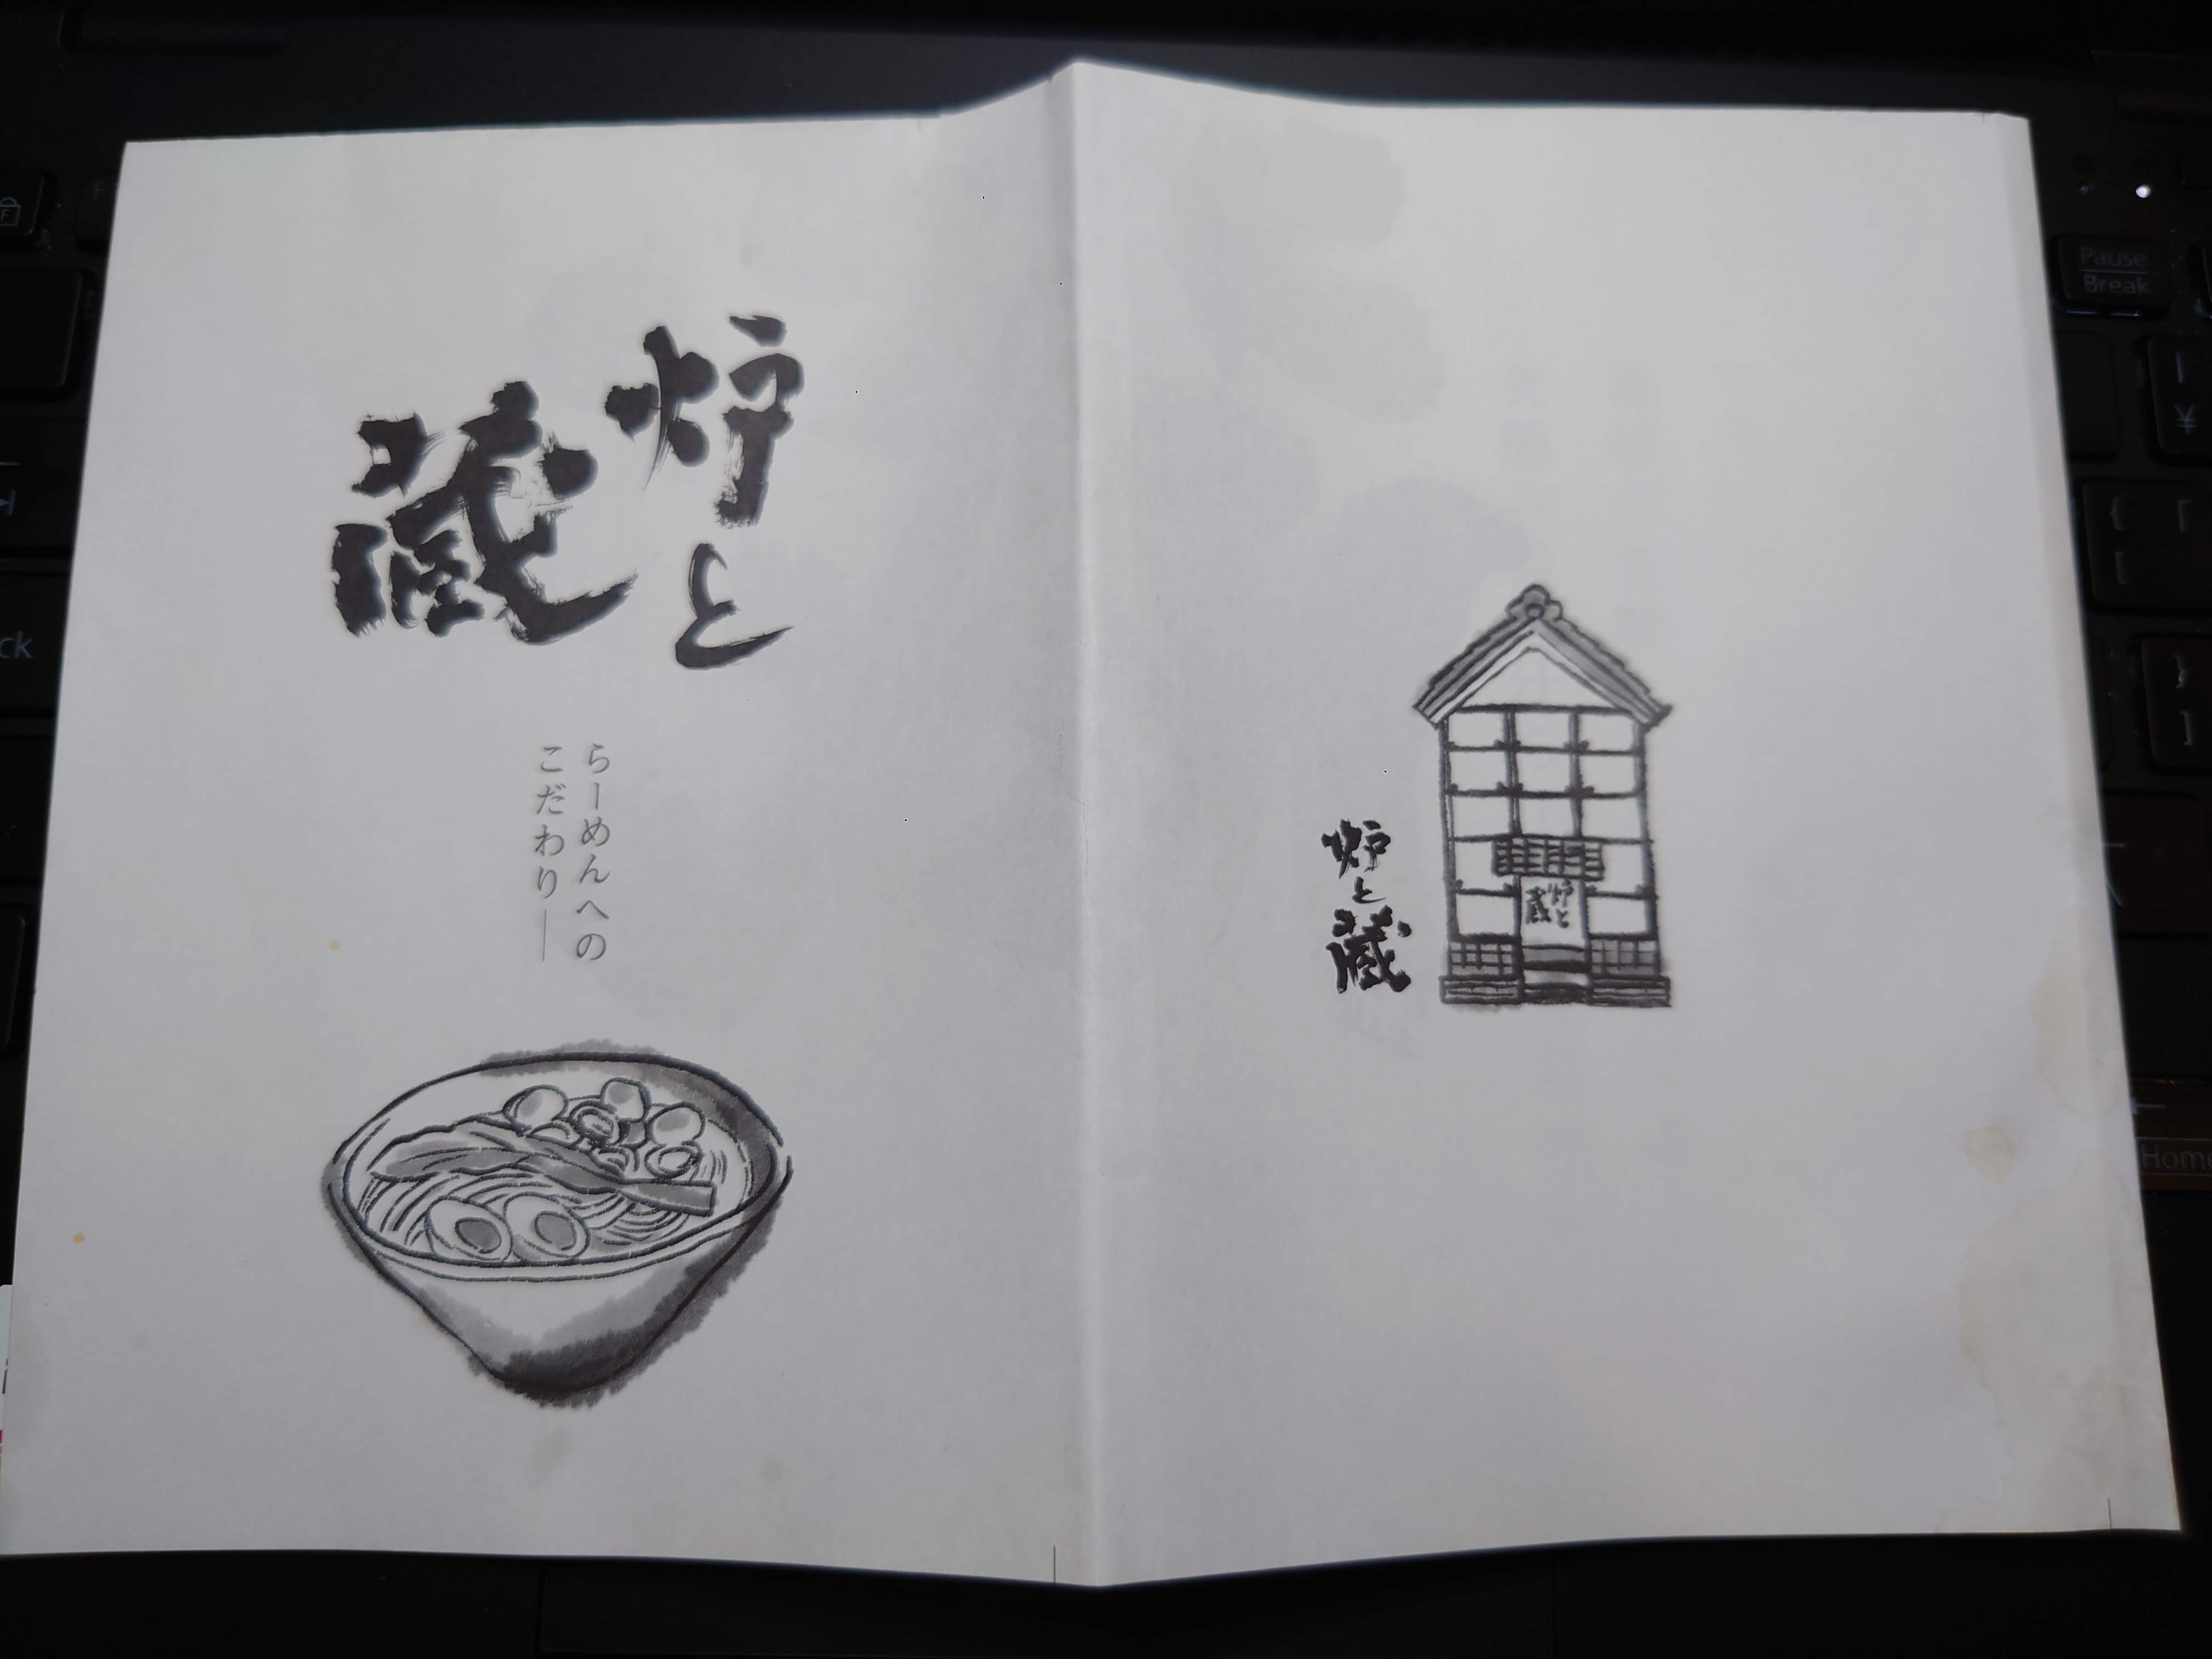 炉と
蔵
らーめんへの
こだわり―
炉と蔵
炉と
蔵
Pause
Break
Home
ck